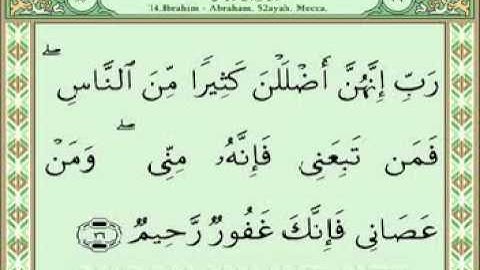 14.Ibrahim - Abraham, 52ayah, Mecca.
رَبِّ إِنَّهُنَّ أَضْلَلْنَ كَثِيرًا مِّنَ ٱلنَّاسِ ۖ
فَمَن تَبِعَنِى فَإِنَّهُۥ مِنِّى ۖ وَمَنْ
عَصَانِى فَإِنَّكَ غَفُورٌ رَّحِيمٌ ٣٦